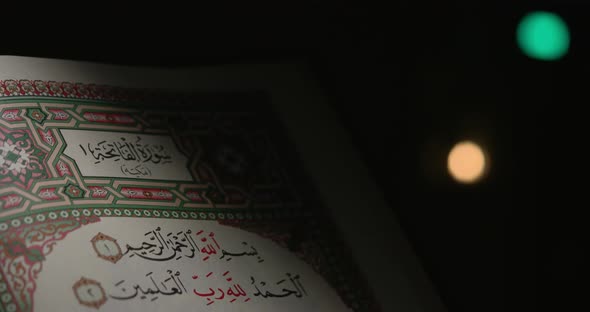 سُورَةُ الْفَاتِحَةِ ١
(مَكِّيَّة)
بِسْمِ ٱللَّهِ ٱلرَّحْمَٰنِ ٱلرَّحِيمِ ١
ٱلْحَمْدُ لِلَّهِ رَبِّ ٱلْعَٰلَمِينَ ٢